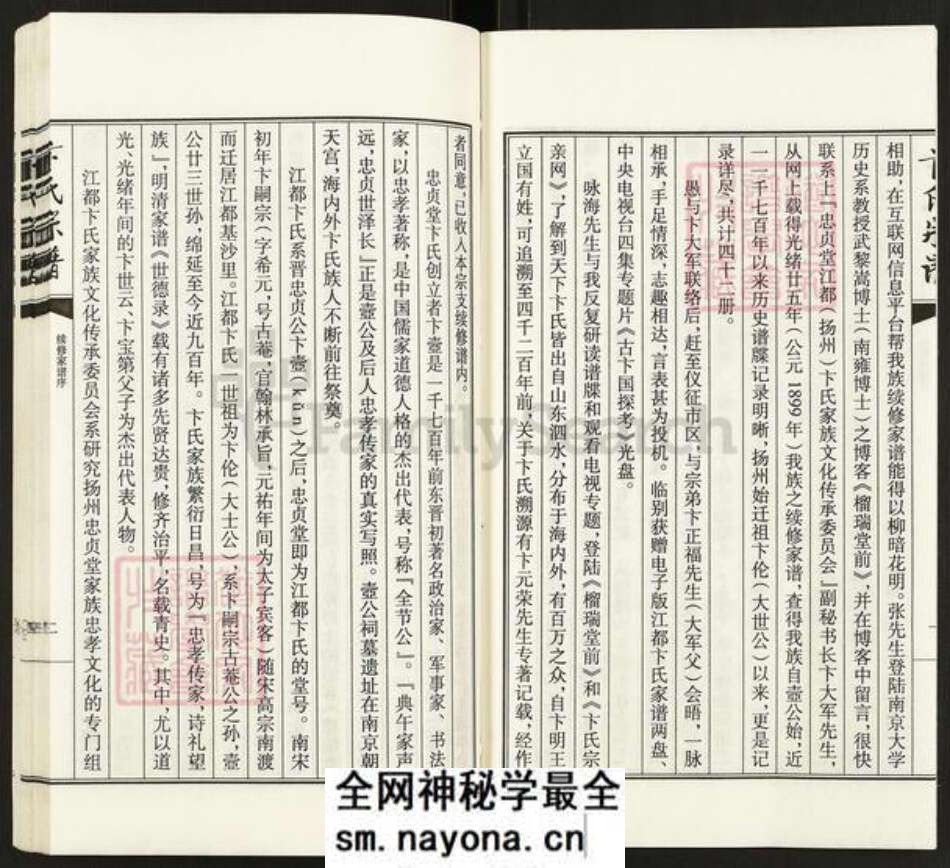 相助，在互联网信息平台帮我族续修家谱能得以柳暗花明。张先生登陆南京大学
历史系教授武黎嵩博士（南雍博士）之博客《榴瑞堂前》，并在博客中留言，很快
联系上「忠贞堂江都（扬州）卞氏家族文化传承委员会」副秘书长卞大军先生，
从网上载得光绪廿五年（公元1899年）我族之续修家谱，查得我族自壸公始，近
一二千七百年以来历史谱牒记录明晰，扬州始迁祖卞伦（大世公）以来，更是记
录详尽，共计四十二册。
愚与卞大军联络后，赶至仪征市区，与宗弟卞正福先生（大军父）会晤，一脉
相承，手足情深，志趣相达，言表甚为投机。临别获赠电子版江都卞氏家谱两盘、
中央电视台四集专题片《古卞国探考》光盘。
咏海先生与我反复研读谱牒和观看电视专题，登陆《榴瑞堂前》和《卞氏宗
亲网》，了解到天下卞氏皆出自山东泗水，分布于海内外，有百万之众，自卞明王
立国有姓，可追溯至四千二百年前，关于卞氏溯源有卞元荣先生专著记载，经作
者同意，已收入本宗支续修谱内。
忠贞堂卞氏创立者卞壸是一千七百年前东晋初著名政治家、军事家、书法
家，以忠孝著称，是中国儒家道德人格的杰出代表，号称「全节公」。「典午家声
远，忠贞世泽长」正是壸公及后人忠孝传家的真实写照。壸公祠墓遗址在南京朝
天宫，海内外卞氏族人不断前往祭奠。
江都卞氏系晋忠贞公卞壸（kǔn）之后，忠贞堂即为江都卞氏的堂号。南宋
初年卞嗣宗（字希元，号古菴，官翰林承旨，元祐年间为太子宾客）随宋高宗南渡
而迁居江都基沙里。江都卞氏一世祖为卞伦（大士公），系卞嗣宗古菴公之孙，壸
公廿三世孙，绵延至今近九百年。卞氏家族繁衍日昌，号为「忠孝传家，诗礼望
族」，明清家谱《世德录》载有诸多先贤达贵，修齐治平，名载青史。其中，尤以道
光、光绪年间的卞世云、卞宝第父子为杰出代表人物。
江都卞氏家族文化传承委员会系研究扬州忠贞堂家族忠孝文化的专门组
卞氏宗谱
续修家谱序
FamilySearch
全网神秘学最全
sm.nayona.cn